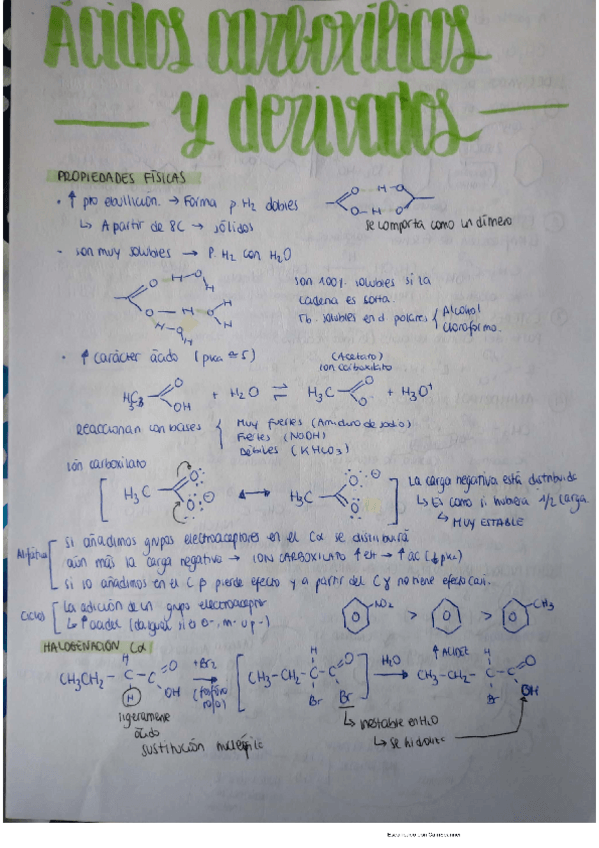 Ácidos carboxílicos
y derivados
PROPIEDADES FÍSICAS
· ↑ pto ebullición → Forma p H2 dobles
↳ A partir de 8C → sólidos
se comporta como un dímero
- son muy solubles → P. H2 con H2O
son 100% solubles si la
cadena es corta
Tb. solubles en d polares { Alcohol
Cloroformo
· ↑ carácter ácido (pka ≈ 5)
(Acetato)
ion carboxilato
H3C O OH + H2O ⇌ H3C O O + H3O+
Reaccionan con bases { Muy fuertes (Amiduro de sodio)
Fuertes (NaOH)
Débiles (KHCO3)
ión carboxilato
[ H3C O O ⊖ ↔ H3C O ⊖ O ]
La carga negativa está distribuida
↳ Es como si hubiera 1/2 carga.
↳ MUY ESTABLE
si añadimos grupos electroaceptores en el Cα se distribuirá
aún más la carga negativa → ION CARBOXILATO ↑ est → ↑ ac (↓pka)
si lo añadimos en el Cβ pierde efecto y a partir del Cγ no tiene efecto
Ciclos [ La adición de un grupo electroaceptor
↳ ↑ acidez (da igual si o-, m- u p-)
NO2 > > CH3
HALOGENACIÓN Cα
↑ ACIDEZ
CH3CH2 - C - C O OH H H
+Br2
(fósforo
rojo)
[ CH3-CH2-C-C O H Br Br ]
H2O
CH3-CH2-C-C O H Br OH
ligeramente
ácido
↳ inestable en H2O
↳ se hidroliza
sustitución